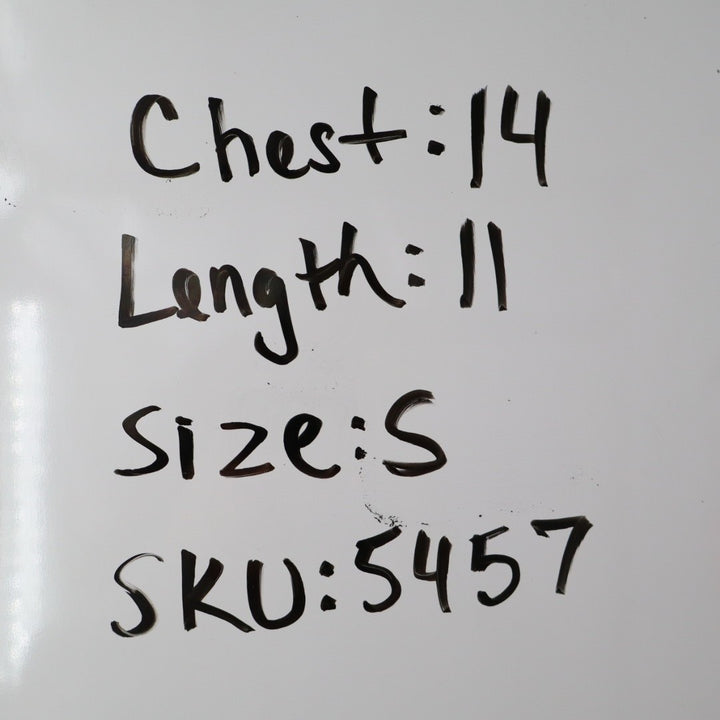 Chest:14
Length:11
Size:S
SKU:5457